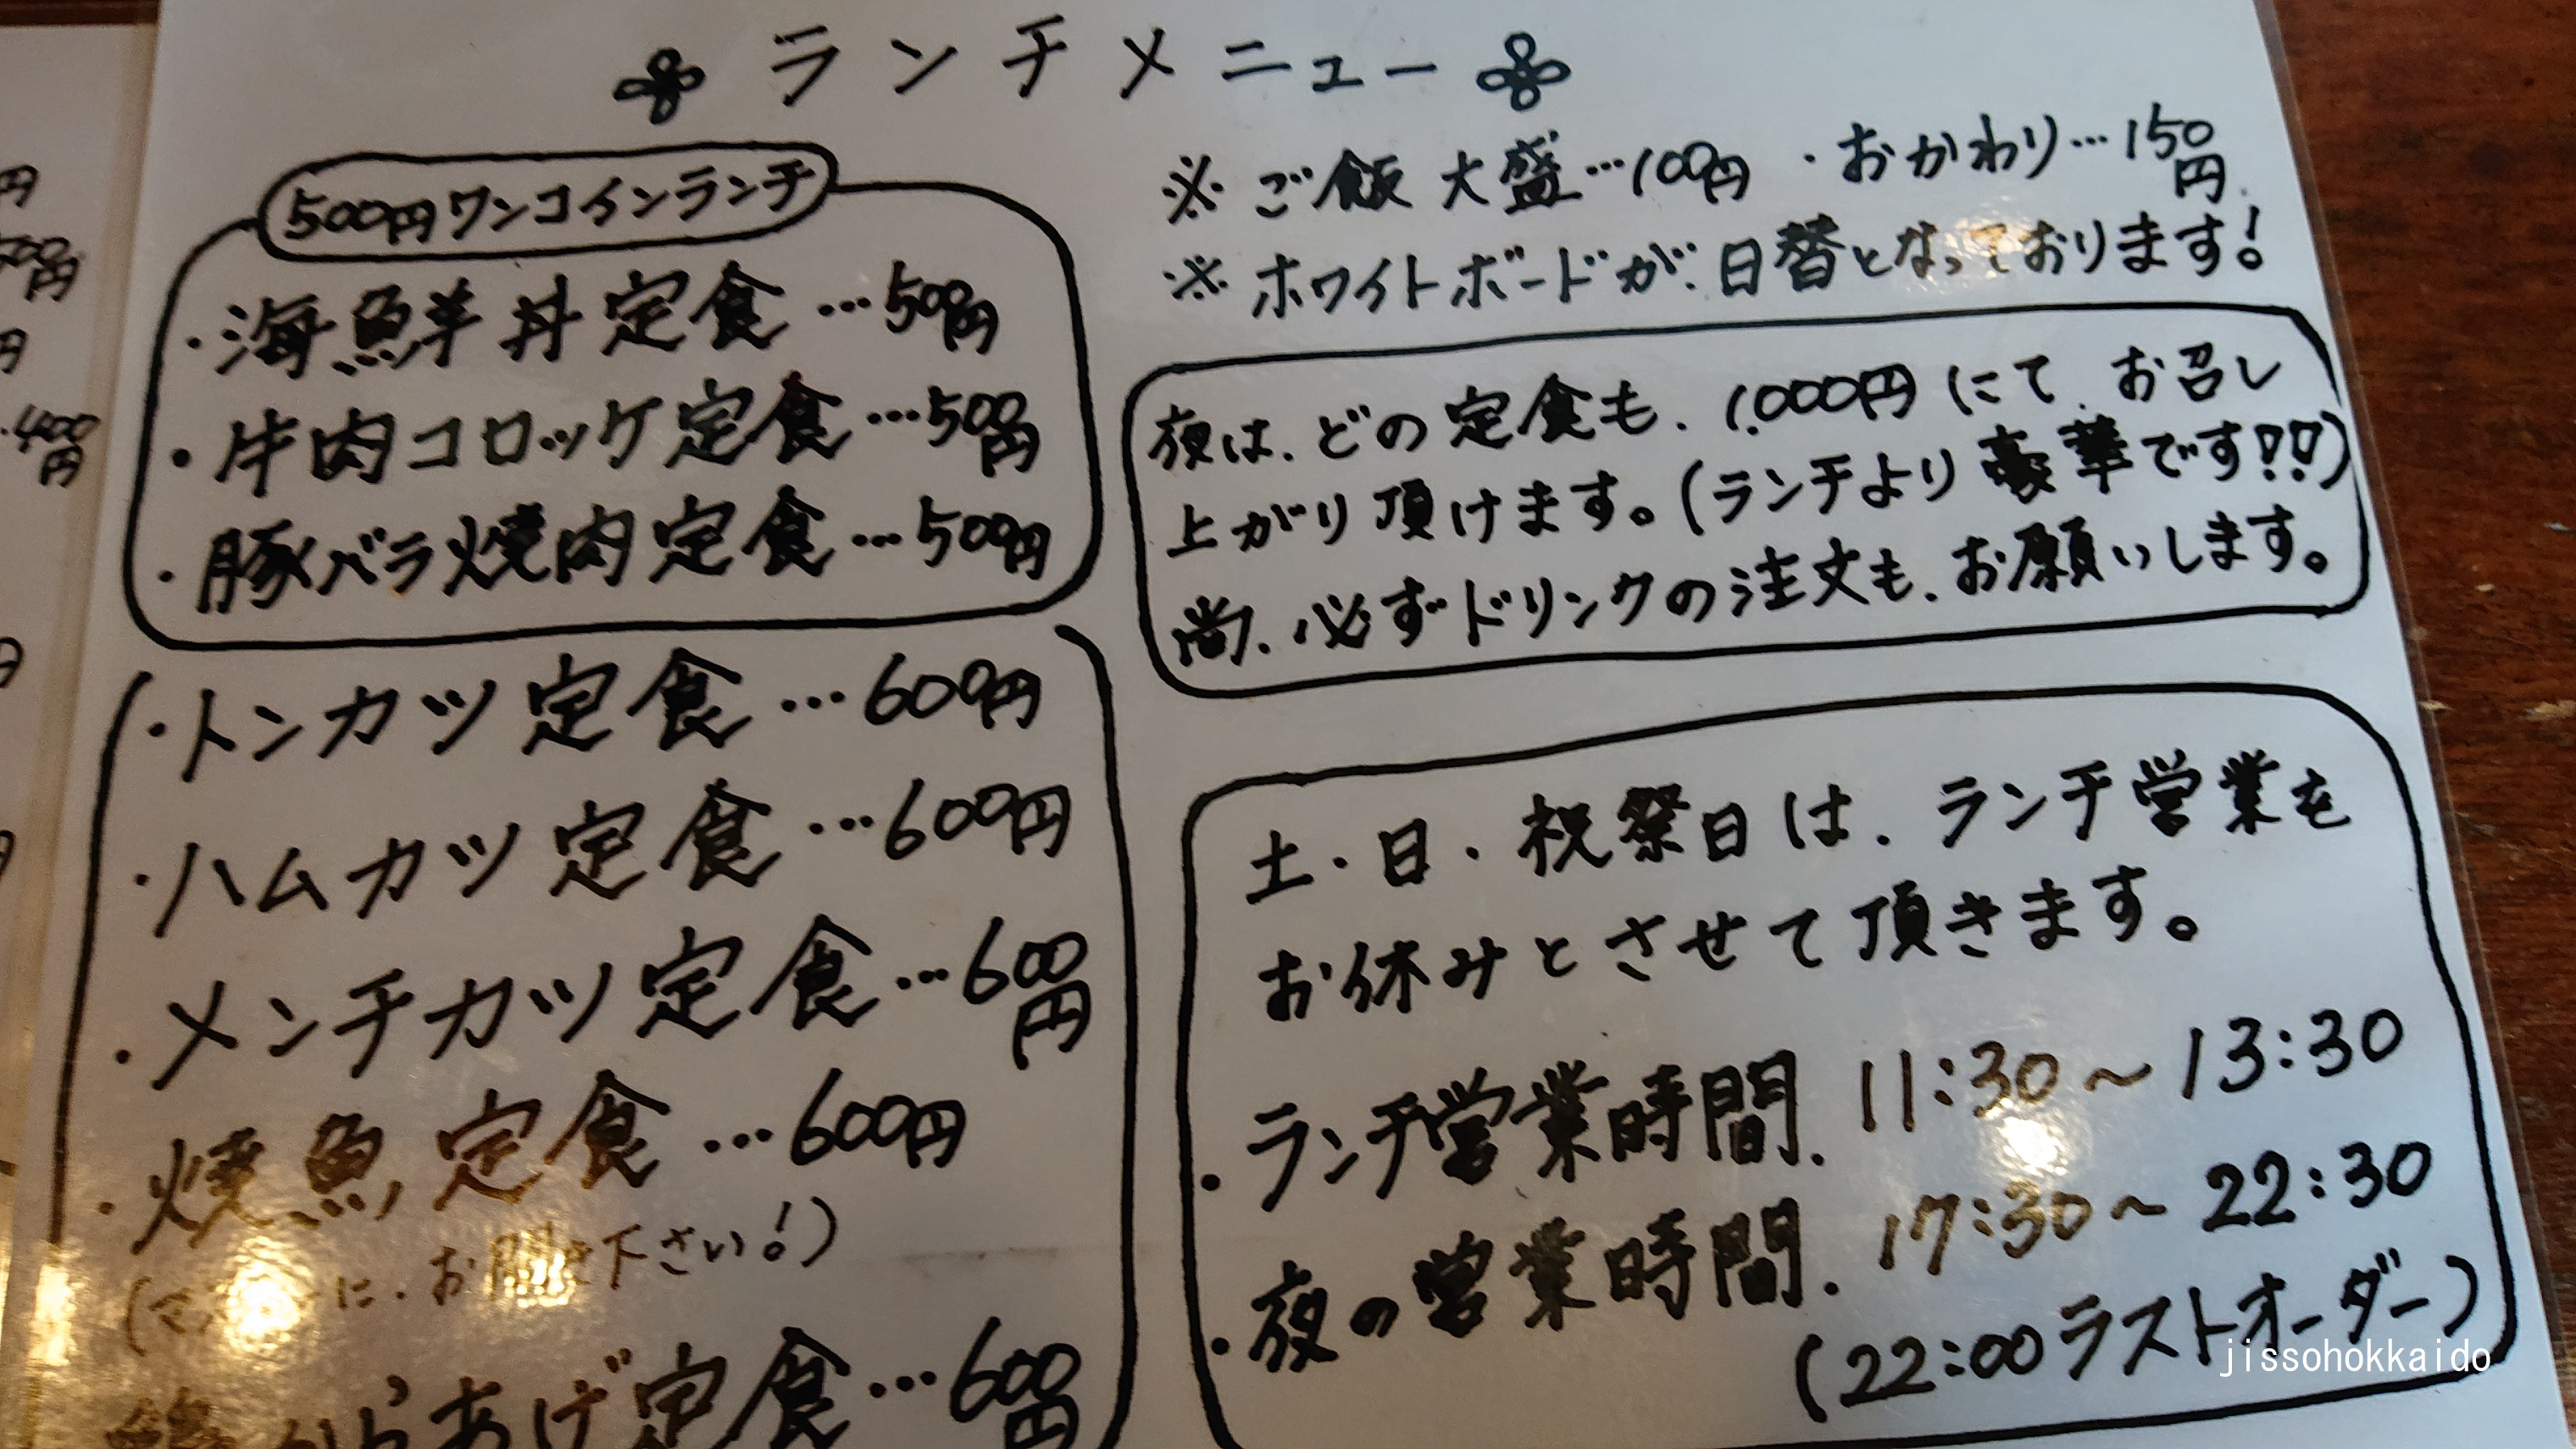 ランチメニュー
500円ワンコインランチ
・海鮮丼定食…500円
・牛肉コロッケ定食…500円
・豚バラ焼肉定食…500円
・トンカツ定食…600円
・ハムカツ定食…600円
・メンチカツ定食…600円
・焼魚定食…600円
(マスターに、お聞き下さい!)
からあげ定食…600円
※ご飯大盛…100円・おかわり…150円
※ホワイトボードが、日替となっております!
夜は、どの定食も、1,000円にて、お召し
上がり頂けます。(ランチより豪華です!!)
尚、必ずドリンクの注文も、お願いします。
土・日・祝祭日は、ランチ営業を
お休みとさせて頂きます。
・ランチ営業時間、11:30～13:30
・夜の営業時間、17:30～22:30
(22:00ラストオーダー)
円
円
400円
jissohokkaido